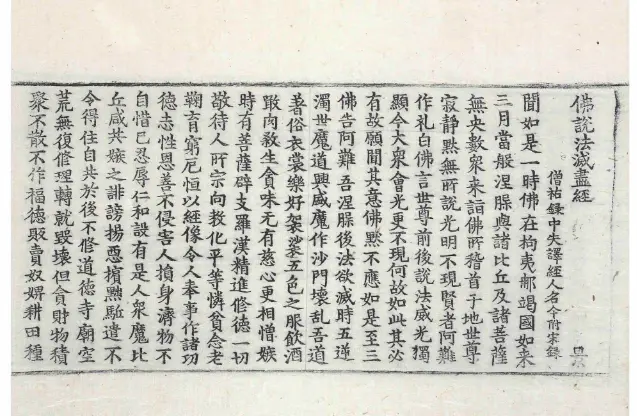 佛說法滅盡經
僧祐錄中失譯經人名今附宋錄
聞如是一時佛在拘夷那竭國如來
三月當般涅槃與諸比丘及諸菩薩
無央數衆來詣佛所稽首于地世尊
寂靜默無所說光明不現賢者阿難
作礼白佛言世尊前後說法威光獨
顯今大衆會光更不現何故如此其必
有故願聞其意佛默不應如是至三
佛告阿難吾涅槃後法欲滅時五逆
濁世魔道興盛魔作沙門壞乱吾道
著俗衣裳樂好袈裟五色之服飲酒
噉肉殺生貪味无有慈心更相憎嫉
時有菩薩辟支羅漢精進修德一切
敬待人所宗向教化平等憐貧念老
鞠育窮厄恒以經像令人奉事作諸功
德志性恩善不侵害人損身濟物不
自惜己忍辱仁和設有是人衆魔比
丘咸共嫉之誹謗揚惡擯黜駈遣不
令得住自共於後不修道德寺廟空
荒無復修理轉就毀壞但貪財物積
聚不散不作福德販賣奴婢耕田種